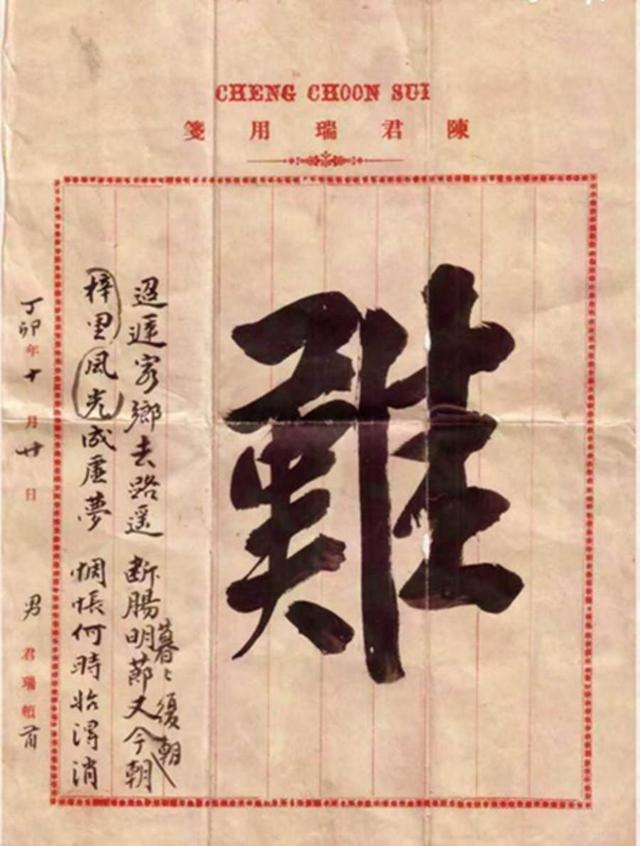 CHENG CHOON SUI
陳君瑞用箋
難
迢遞家鄉去路遥 断腸明節又今朝
暮〻復朝
梓里風光成虛夢 惆悵何時始得消
丁卯年十月廿日 男君瑞頓首